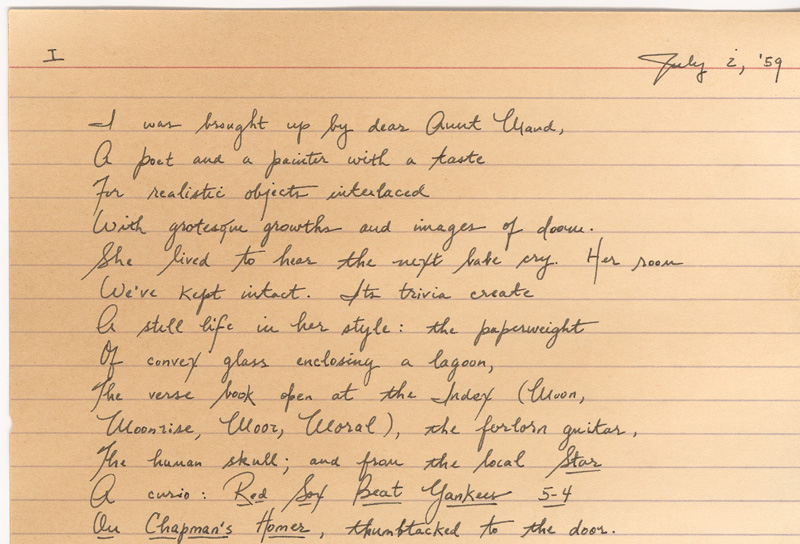 I
July 2, '59
I was brought up by dear Aunt Maud,
A poet and a painter with a taste
For realistic objects interlaced
With grotesque growths and images of doom.
She lived to hear the next babe cry. Her room
We've kept intact. Its trivia create
A still life in her style: the paperweight
Of convex glass enclosing a lagoon,
The verse book open at the Index (Moon,
Moonrise, Moor, Moral), the forlorn guitar,
The human skull; and from the local Star
A curio: Red Sox Beat Yankees 5-4
On Chapman's Homer, thumbtacked to the door.